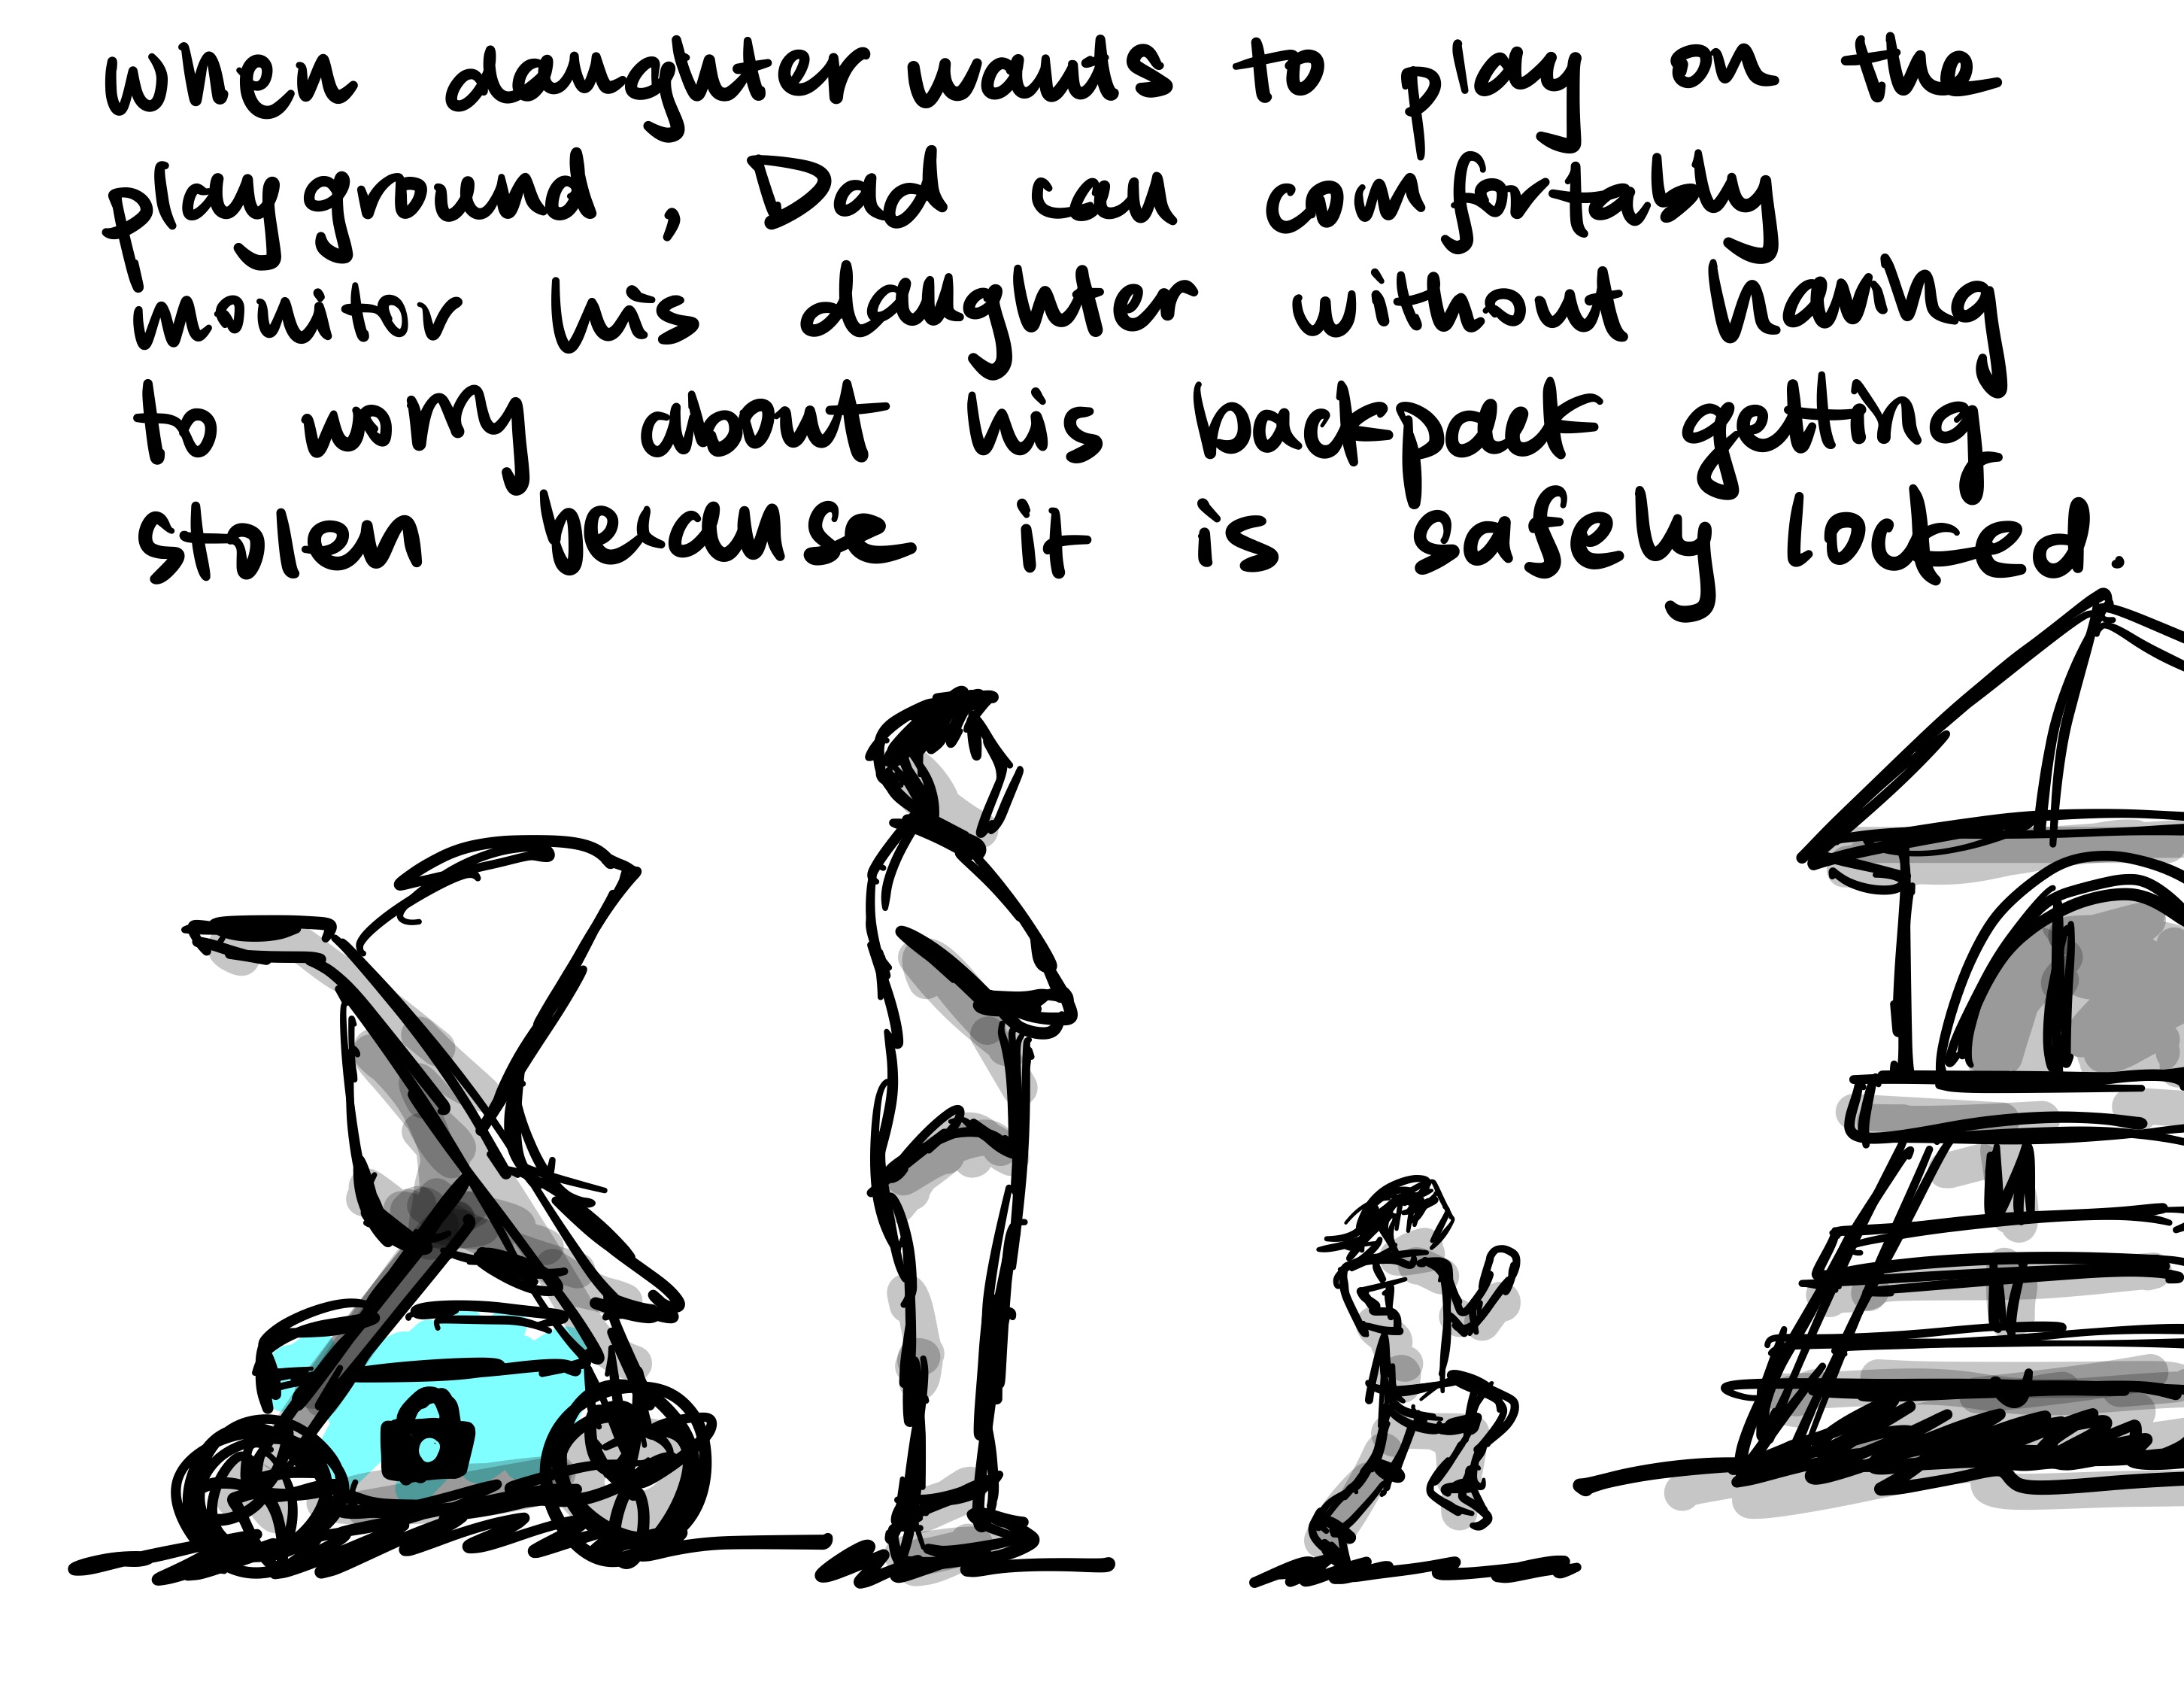 When daughter wants to play on the
playground, Dad can comfortably
monitor his daughter without having
to worry about his backpack getting
stolen because it is safely locked.